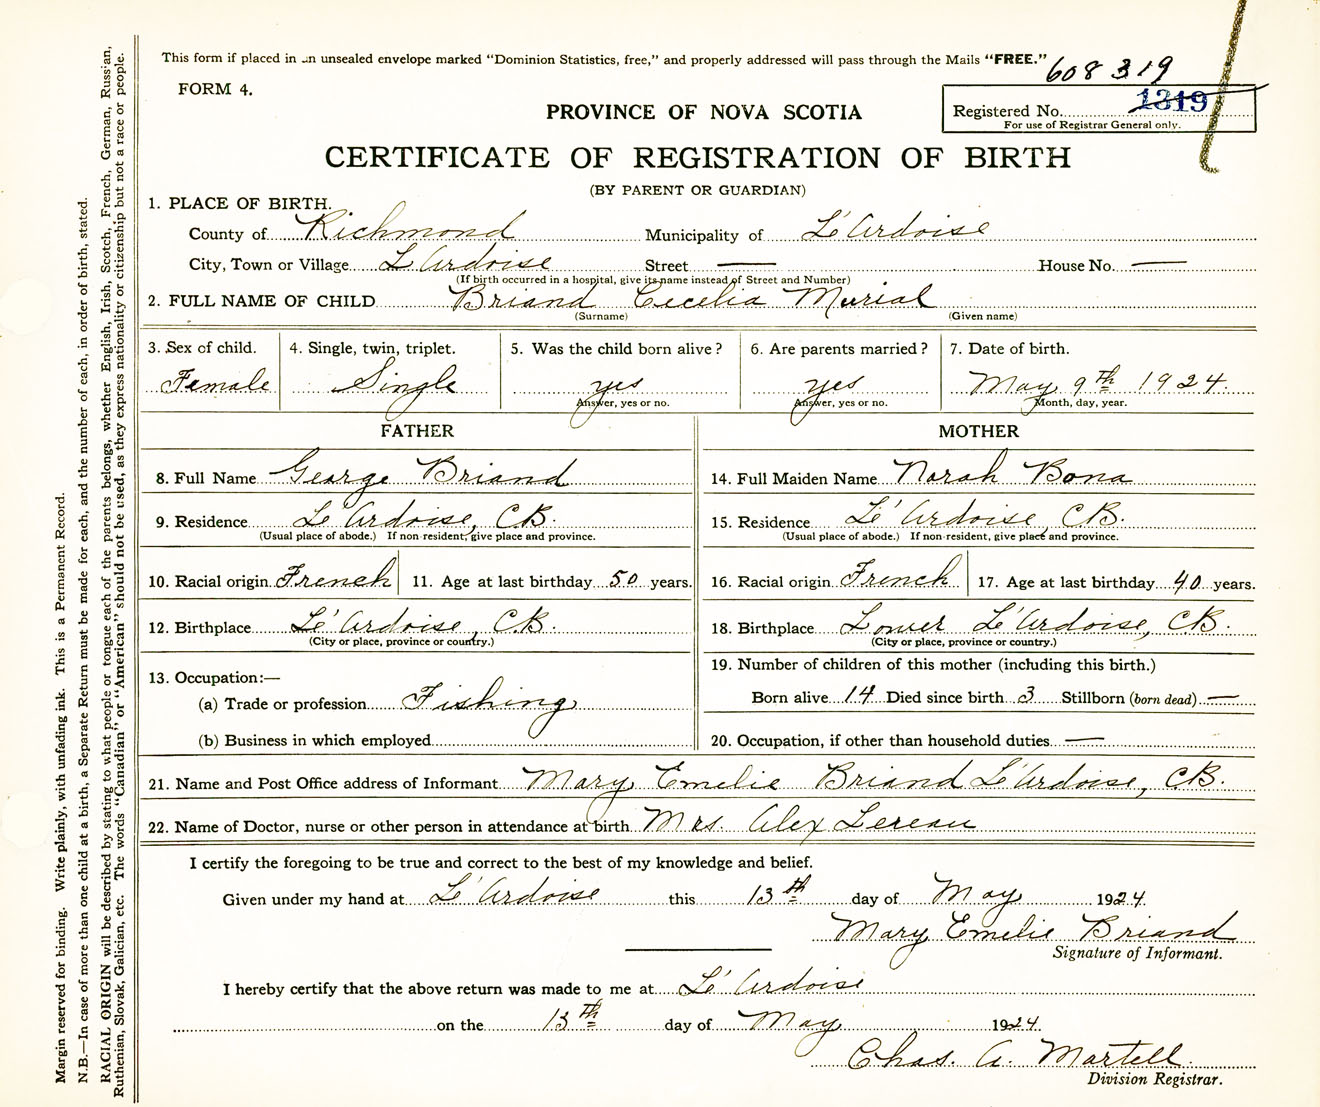 This form if placed in an unsealed envelope marked “Dominion Statistics, free,” and properly addressed will pass through the Mails “FREE.”
608 319
FORM 4.
PROVINCE OF NOVA SCOTIA
Registered No. 1319
For use of Registrar General only.
CERTIFICATE OF REGISTRATION OF BIRTH
(BY PARENT OR GUARDIAN)
1. PLACE OF BIRTH.
County of Richmond Municipality of L'Ardoise
City, Town or Village L'Ardoise Street — House No. —
(If birth occurred in a hospital, give its name instead of Street and Number)
2. FULL NAME OF CHILD Briand Cecelia Murial
(Surname) (Given name)
3. Sex of child. 4. Single, twin, triplet. 5. Was the child born alive? 6. Are parents married? 7. Date of birth.
Female Single yes yes May 9th 1924.
Answer, yes or no. Answer, yes or no. Month, day, year.
FATHER MOTHER
8. Full Name George Briand 14. Full Maiden Name Norah Bona
9. Residence L'Ardoise, C.B. 15. Residence L'Ardoise, C.B.
(Usual place of abode.) If non-resident, give place and province. (Usual place of abode.) If non-resident, give place and province.
10. Racial origin French 11. Age at last birthday 50 years. 16. Racial origin French 17. Age at last birthday 40 years.
12. Birthplace L'Ardoise, C.B. 18. Birthplace Lower L'Ardoise, C.B.
(City or place, province or country.) (City or place, province or country.)
19. Number of children of this mother (including this birth.)
13. Occupation:—
Born alive 14 Died since birth 3 Stillborn (born dead) —
(a) Trade or profession Fishing
(b) Business in which employed 20. Occupation, if other than household duties —
21. Name and Post Office address of Informant Mary Emelie Briand L'Ardoise, C.B.
22. Name of Doctor, nurse or other person in attendance at birth Mrs. Alex
I certify the foregoing to be true and correct to the best of my knowledge and belief.
Given under my hand at L'Ardoise this 13th day of May 1924.
Mary Emelie Briand
Signature of Informant.
I hereby certify that the above return was made to me at L'Ardoise
on the 13th day of May 1924.
Chas. A. Martell.
Division Registrar.
Margin reserved for binding. Write plainly, with unfading ink. This is a Permanent Record.
N.B.—In case of more than one child at a birth, a Separate Return must be made for each, and the number of each, in order of birth, stated.
RACIAL ORIGIN will be described by stating to what people or tongue each of the parents belongs, whether English, Irish, Scotch, French, German, Russian,
Ruthenian, Slovak, Galician, etc. The words “Canadian” or “American” should not be used, as they express nationality or citizenship but not a race or people.